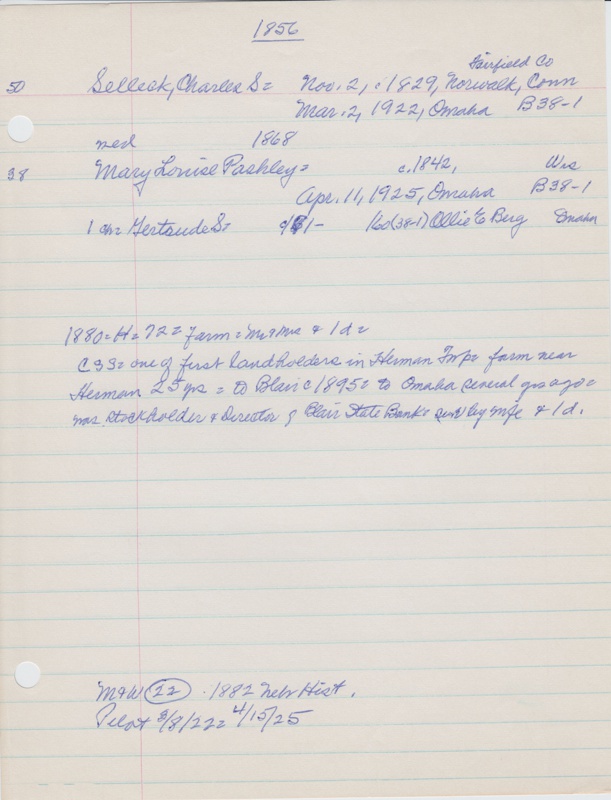 1856
Fairfield Co
50 Selleck, Charles S= Nov. 2, c1829, Norwalk, Conn
Mar. 2, 1922, Omaha B38-1
med 1868
38 Mary Louise Pashley= c.1842, Wis
Apr. 11, 1925, Omaha B38-1
1 ch= Gertrude S= 160(38-1) Ollie E Berg Omaha
1880=H=72= Farm= Mr & Mrs & 1d=
CSS= one of first landholders in Herman Twp= farm near
Herman 25 yrs = to Blair c1895= to Omaha several yrs ago=
was stockholder & Director of Blair State Bank= surv by wife & 1d.
M&W 22 . 1882 Nebr Hist.
Pilot 3/8/22= 4/15/25